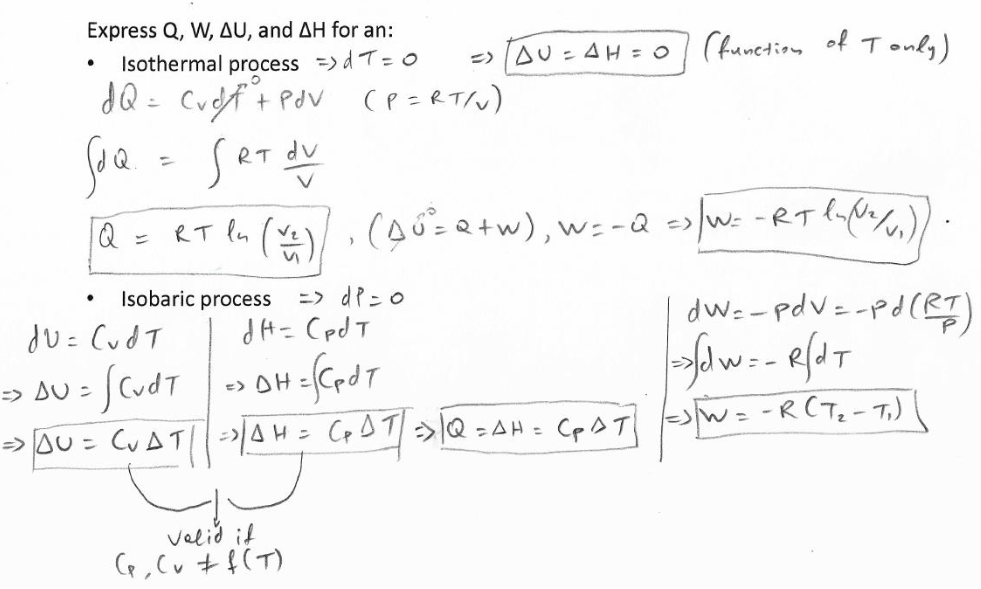 Express Q, W, ΔU, and ΔH for an:
• Isothermal process => dT = 0 => ΔU = ΔH = 0 (function of T only)
dQ = CvdT⁰ + PdV (P = RT/V)
∫dQ = ∫ RT dV/V
Q = RT ln (V₂/V₁) , (ΔU⁰ = Q + W), W = -Q => W = -RT ln(V₂/V₁) .
• Isobaric process => dP = 0
dU = CvdT
=> ΔU = ∫CvdT
=> ΔU = Cv ΔT
dH = CpdT
=> ΔH = ∫CpdT
=> ΔH = Cp ΔT => Q = ΔH = Cp ΔT
dW = -PdV = -Pd(RT/P)
=> ∫dW = - R∫dT
=> W = -R(T₂ - T₁)
valid if
Cp, Cv ≠ f(T)